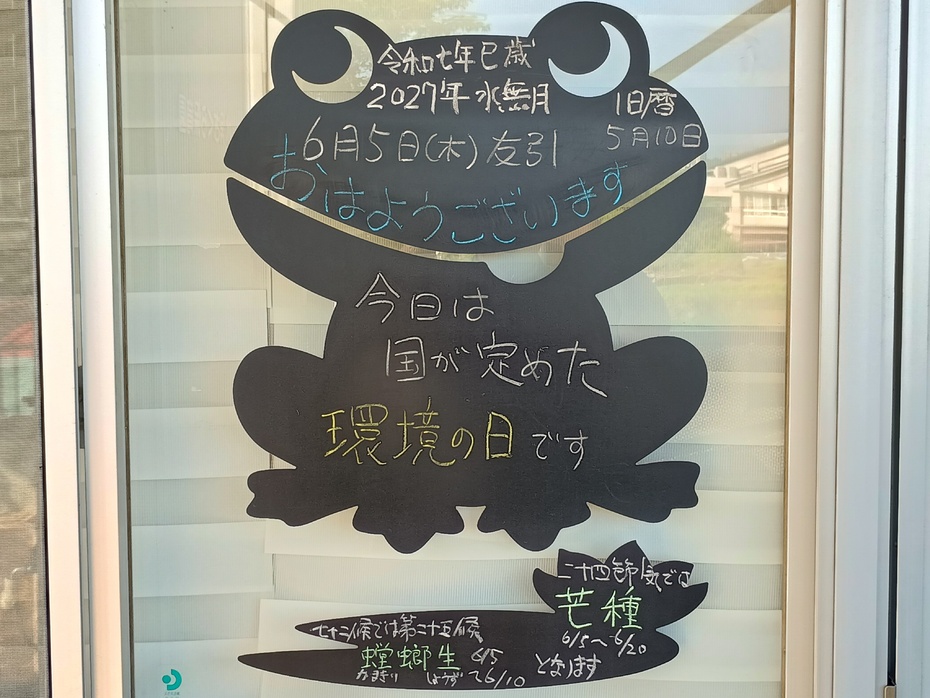 令和七年巳歳
2027年 水無月
旧暦
6月5日(木)友引
5月10日
おはようございます
今日は
国が定めた
環境の日です
二十四節気では
芒種
6/5〜6/20
となります
七十二候では第二十五候
螳螂生 6/5
かまきり しょうず 〜6/10